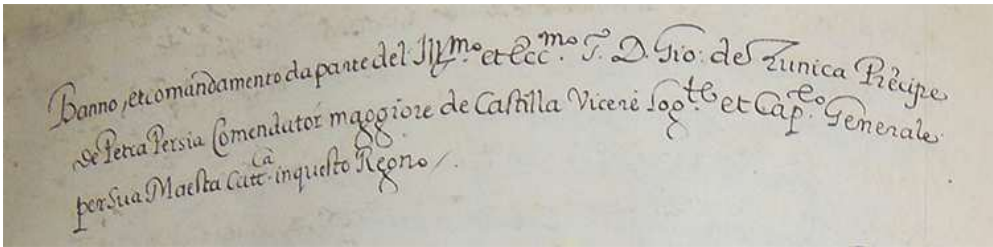 Banno, et comandamento da parte del Ill.mo et Ecc.mo S.r D. Gio: de Zunica Prĩcipe
de Petra Persia Comendator maggiore de Castilla Vicerè Log.te et Cap.eo Generale
per Sua Maesta Catt.ca in questo Regno /.